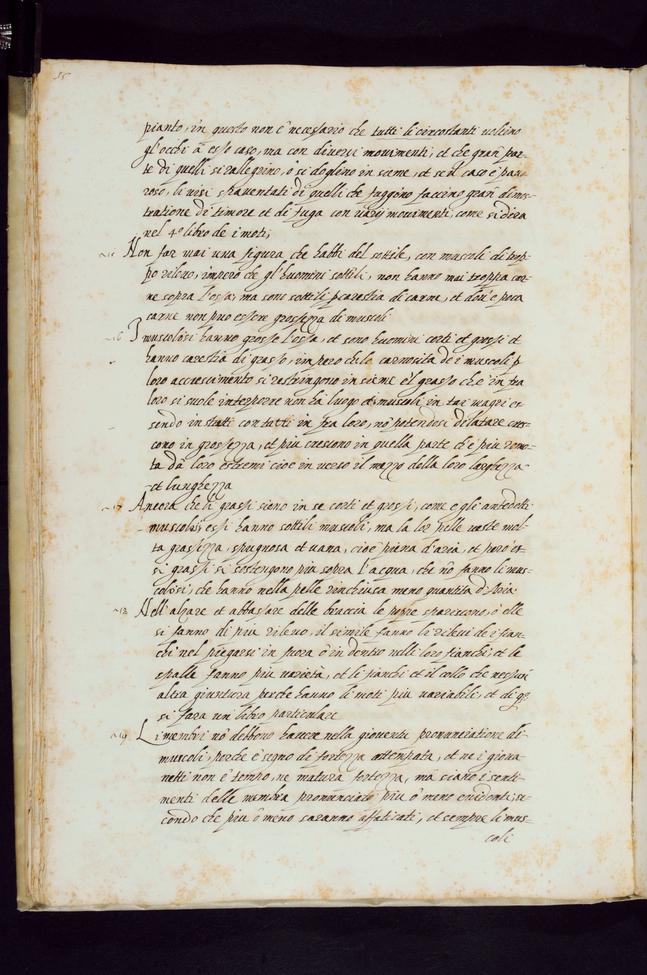 pianto, in questo non è necessario che tutti li circostanti voltino
gl'occhi à esso caso, ma con diversi movimenti, et che gran par-
te di quelli si rallegrino, ò si doglino insieme, et se il caso è pau-
roso, li visi spaventati di quelli che fuggino faccino gran dimos-
tratione di timore et di fuga con varij movimenti, come si dira
nel 4º libro de i moti;
Non far mai una figura che habbi del sottile, con muscoli di trop-
po rilevo, imperò che gl'huomini sottili, non hanno mai troppa car-
ne sopra l'ossa, ma sono sottili p carestia di carne, et dov'è poca
carne non puo essere grossezza di muscoli
I muscolosi hanno grosse l'ossa, et sono huomini corti et grossi et
hanno carestia di grasso, imperò che le carnosita de i muscoli p
loro accrescimento si ristringono insieme e'l grasso che in fra
loro si suole interporre non hà luogo et i muscoli in tai magri es-
sendo in tutto con tutti in fra loro, nō potendosi dilatare cres-
cono in grossezza, et più crescono in quella parte che è più remo-
ta da loro estremi cioè in verso il mezzo della loro larghezza
et lunghezza
17 Ancora che li grassi sieno in se corti et grossi, come e gli antedetti
muscolosi, essi hanno sottili muscoli, ma la lor pelle veste mol-
ta grassezza, spugnosa et vana, cioè piena d'aria, et però es-
si grassi si sostengono più sopra l'acqua, che nō fanno li mus-
colosi, che hanno nella pelle rinchiusa meno quantita d'Aria
18 Nell'alzare et abbassare delle braccia le poppe spariscono, ò elle
si fanno di più rilevo, il simile fanno li rilevi de i fian-
chi nel piegarsi in fuora ò in dentro nelli loro fianchi, et le
spalle fanno più varietà, et li fianchi et il collo che nessuna
altra giuntura perche hanno li moti più variabile, et di qsto
si fara un libro particulare
19 Li membri nō debbono havere nella gioventu pronunciatione di
muscoli, perche è segno di fortezza attempata, et ne i giova-
netti non è tempo, ne matura fortezza, ma siano i senti-
menti delle membra pronunciati più ò meno evidenti, se-
condo che più ò meno saranno affaticati, et sempre li mus-
coli